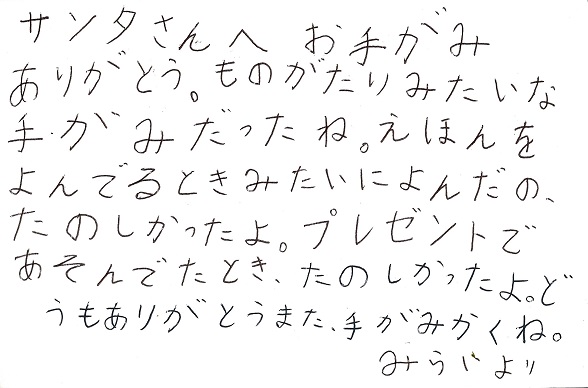 サンタさんへ お手がみ
ありがとう。ものがたりみたいな
手がみだったね。えほんを
よんでるときみたいによんだの、
たのしかったよ。プレゼントで
あそんでたとき、たのしかったよ。ど
うもありがとうまた、手がみかくね。
みらいより